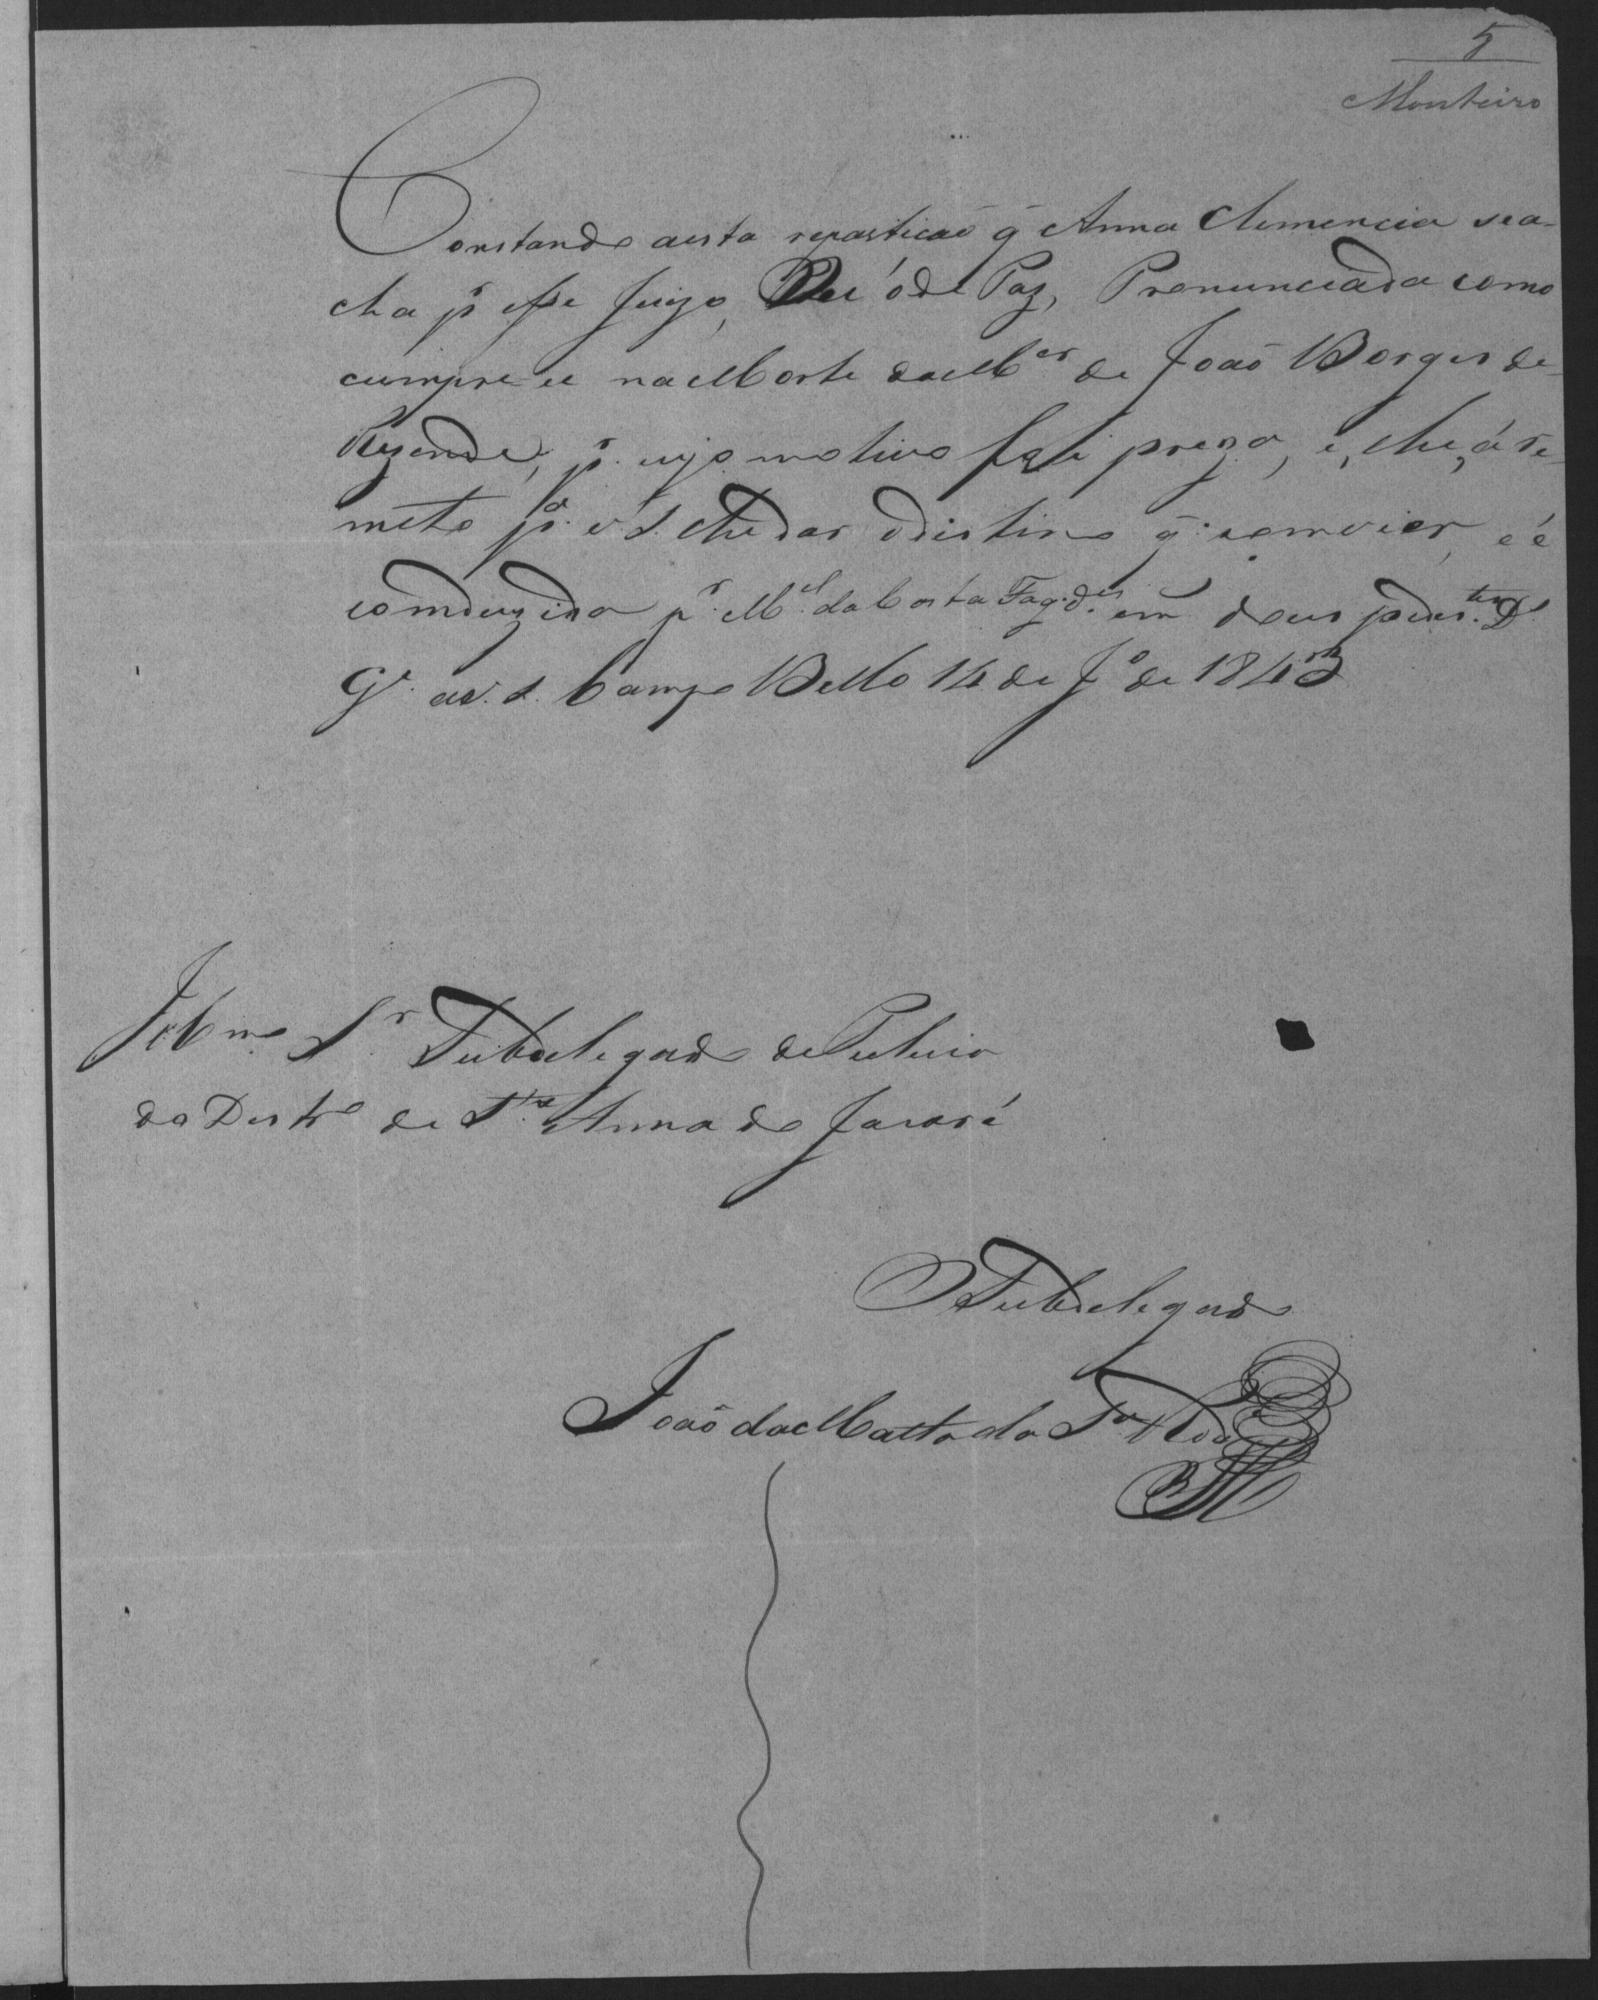 5
Monteiro
Constando aesta reparticaõ q̃ Anna Clemencia sea-
cha pr esse Juizo, ó de Paz, Pronunciada como
cumpre ce na Morte da Mer de Joaõ Borges de
Rezende, pr. cujo motivo foi preza, e, lhe, á re-
meto pa. v S. lhe dar odistino q̃. comvier, e é
comduzida pr. Mel. da Costa Fagdes. em D.s
Ge. av. S. Campo Bello 14 de Jo de 1843
Illmo. Sr. Subdelegado de Pulicia
do Destro de Sta. Anna do Jacaré
O Subdelegado
Joaõ da Matta da Sa